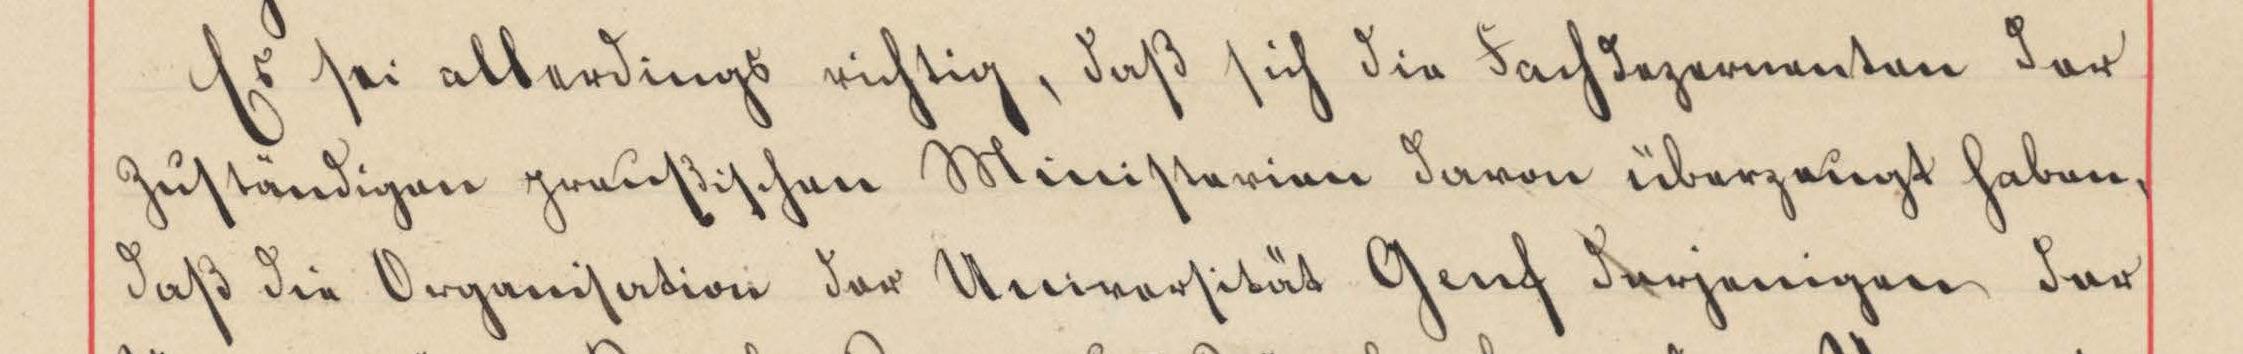 Es sei allerdings richtig, daß sich die Fachdezernenten der
zuständigen preußischen Ministerien davon überzeugt haben,
daß die Organisation der Universität Genf derjenigen der